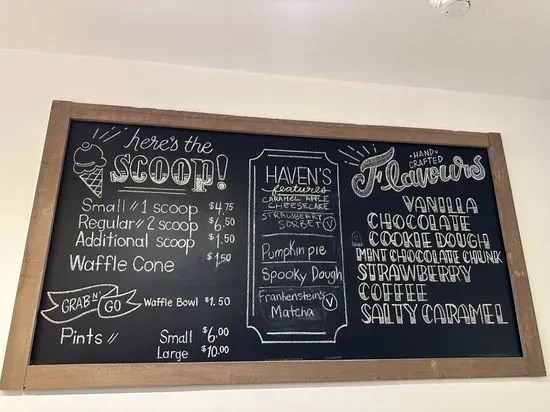 here's the
SCOOP!
Small // 1 scoop $4.75
Regular // 2 scoop $6.50
Additional scoop $1.50
Waffle Cone $1.50
GRAB N' GO
Waffle Bowl $1.50
Pints //
Small $6.00
Large $10.00
HAVEN'S
features
CARAMEL APPLE
CHEESECAKE
STRAWBERRY
SORBET V
Pumpkin pie
Spooky Dough
Frankenstein's
Matcha V
HAND
CRAFTED
Flavours
VANILLA
CHOCOLATE
COOKIE DOUGH
MINT CHOCOLATE CHUNK
STRAWBERRY
COFFEE
SALTY CARAMEL